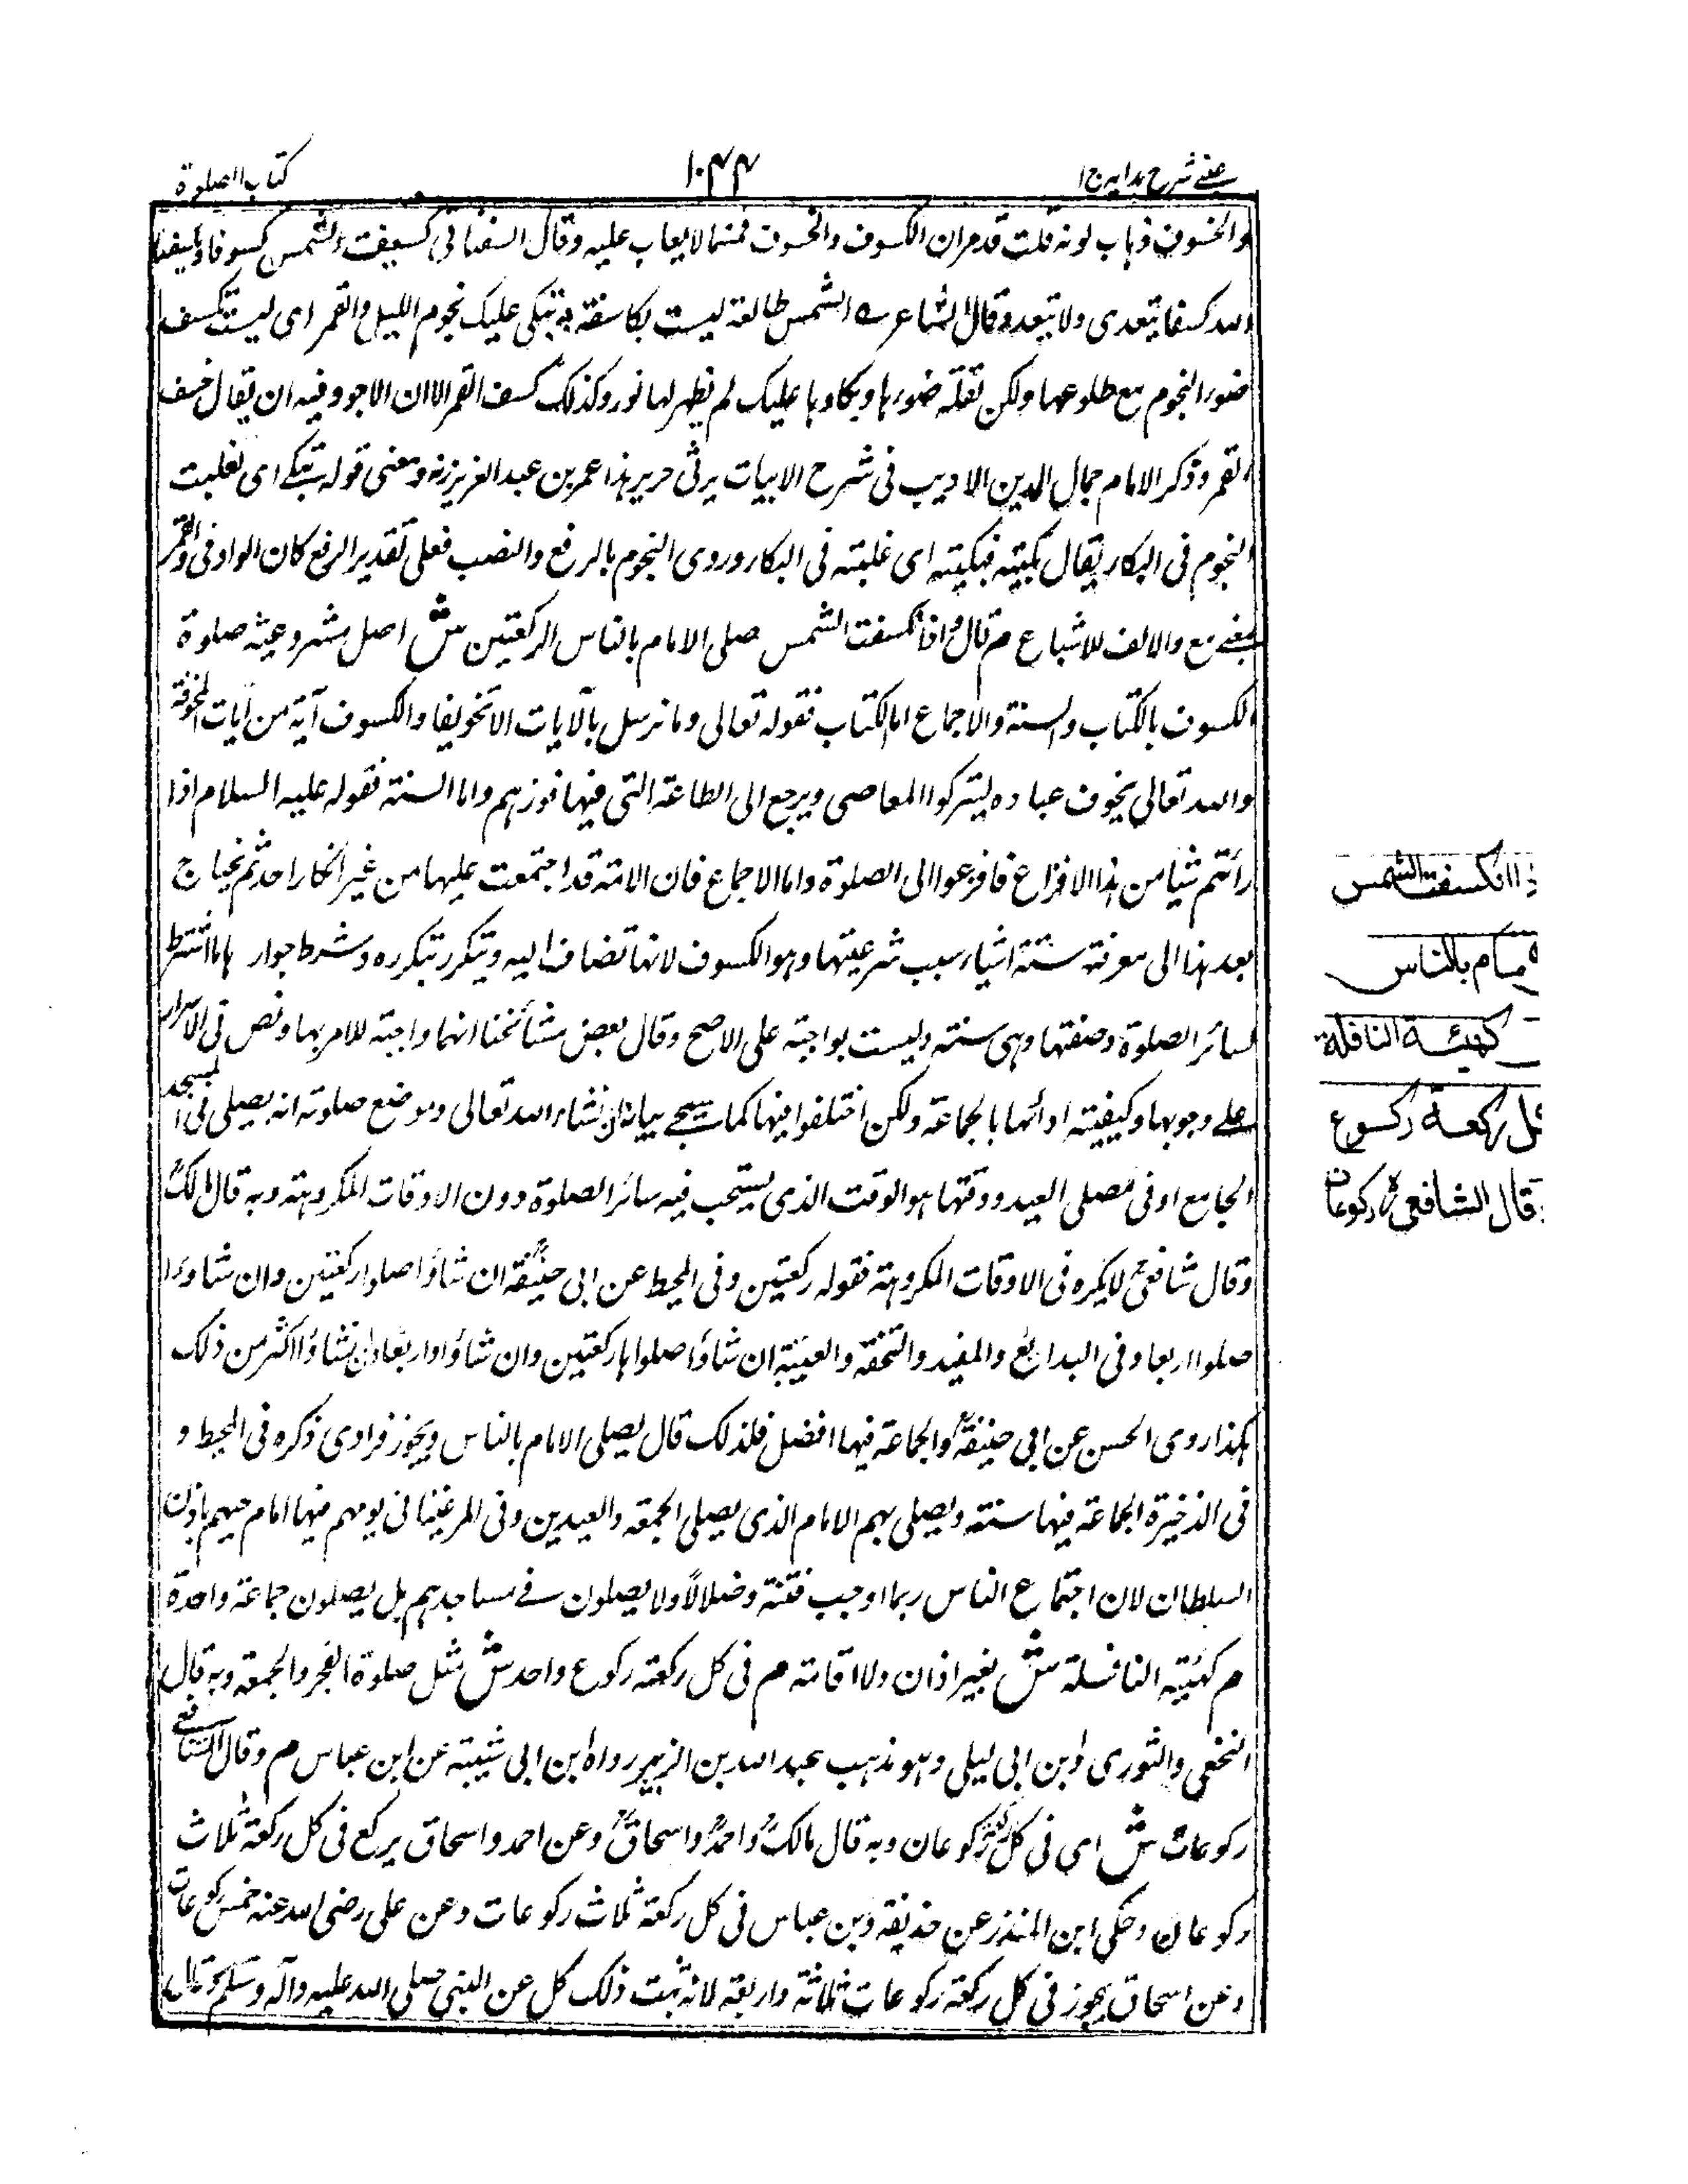 عینی شرح ہدایہ ج ۱
۱۰۴۴
کتاب الصلوة
والخسوف ذہاب لونہ قلت قد مر ان الکسوف والخسوف فمنہما لا یعاب علیہ وقال السغناقی کسفت الشمس کسوفا وکسفہا
اللہ کسفا یتعدی ولا یتعدی وقال الشاعر ؎ الشمس طالعة لیست بکاسفة ÷ تبکی علیک نجوم اللیل والقمر ای لیست تکسف
ضوء النجوم مع طلوعہا ولکن لقلة ضوءہا وبکاءہا علیک لم یظہر لہا نور وکذلک کسف القمر الا ان الاجود فیہ ان یقال خسف
القمر وذکر الامام جمال الدین الادیب فی شرح الابیات یرثی جریر بہذا عمر بن عبد العزیز رضہ ومعنی قولہ تبکے ای تغلبت
النجوم فی البکاء یقال بکیتہ فبکیتہ ای غلبتہ فی البکاء وروی النجوم بالرفع والنصب فعلی تقدیر الرفع کان الواو فی والقمر
بمعنے مع والالف للاشباع م قال واذا انکسفت الشمس صلی الامام بالناس الرکعتین ش اصل مشروعیة صلوة
الکسوف بالکتاب والسنة والاجماع اما الکتاب فقولہ تعالی وما نرسل بالآیات الا تخویفا والکسوف آیة من آیات المخوفة
واللہ تعالی یخوف عبادہ لیترکوا المعاصی ویرجع الی الطاعة التی فیہا فوزہم واما السنة فقولہ علیہ السلام اذا
رأیتم شیئا من ہذا الافزاع فافزعوا الی الصلوة واما الاجماع فان الامة قد اجتمعت علیہا من غیر انکار احد ثم یحتاج
بعد ہذا الی معرفة ستة اشیاء سبب شرعیتہا وہو الکسوف لانہا تضاف الیہ وتیکرر بتکررہ وشرط جواز ہا ما اشترط
لسائر الصلوة وصفتہا وہی سنة ولیست بواجبة علی الاصح وقال بعض مشائخنا انہا واجبة للامر بہا ونص فی الاسرار
علے وجوبہا وکیفیتہ ادائہا بالجماعة ولکن اختلفوا فیہا کما سیجے بیانہ ان شاء اللہ تعالی وموضع صلوتہ انہ یصلی فی المسجد
الجامع او فی مصلی العید ووقتہا ہو الوقت الذی یستحب فیہ سائر الصلوة دون الاوقات المکروہة وبہ قال مالکؒ
وقال شافعیؒ لا یکرہ فی الاوقات المکروہة فقولہ رکعتین وفی المحیط عن ابی حنیفةؒ ان شاؤا صلوا رکعتین وان شاؤا
صلوا اربعا وفی البدائع والمفید والتحفة والغنیة ان شاؤا صلوا ہا رکعتین وان شاؤا اربعا وان شاؤا اکثر من ذلک
ہکذا روی الحسن عن ابی حنیفةؒ والجماعة فیہا افضل فلذلک قال یصلی الامام بالناس ویجوز فرادی ذکرہ فی المحیط و
فی الذخیرة الجماعة فیہا سنة ویصلی بہم الامام الذی یصلی الجمعة والعیدین وفی المرغینانی یومہم فیہا امام حیہم باذن
السلطان لان اجتماع الناس ربما اوجب فتنة وضلالاً ولا یصلون فے مساجدہم بل یصلون جماعة واحدة
م کہیئة النافلة ش بغیر اذان ولا اقامة م فی کل رکعة رکوع واحد ش مثل صلوة الفجر والجمعة وبہ قال
النخعی والثوری وابن ابی لیلی وہو مذہب عبد اللہ بن الزبیر رواہ ابن ابی شیبة عن ابن عباس م وقال الشافعے
رکوعان ش ای فی کل رکعة رکوعان وبہ قال مالکؒ واحمدؒ واسحاقؒ وعن احمد واسحاق یرکع فی کل رکعة ثلاث
رکوعات وحکی ابن المنذر عن حذیفة وابن عباس فی کل رکعة ثلاث رکوعات وعن علی رضی اللہ عنہ خمس رکوعات
وعن اسحاق یجوز فی کل رکعة رکوعات ثلاثة واربعة لانہ ثبت ذلک کل عن النبی صلی اللہ علیہ وآلہ وسلم وقال
ذا انکسفت الشمس
مام بالناس
کہیئة النافلة
کل رکعة رکوع
قال الشافعیؒ رکوعان